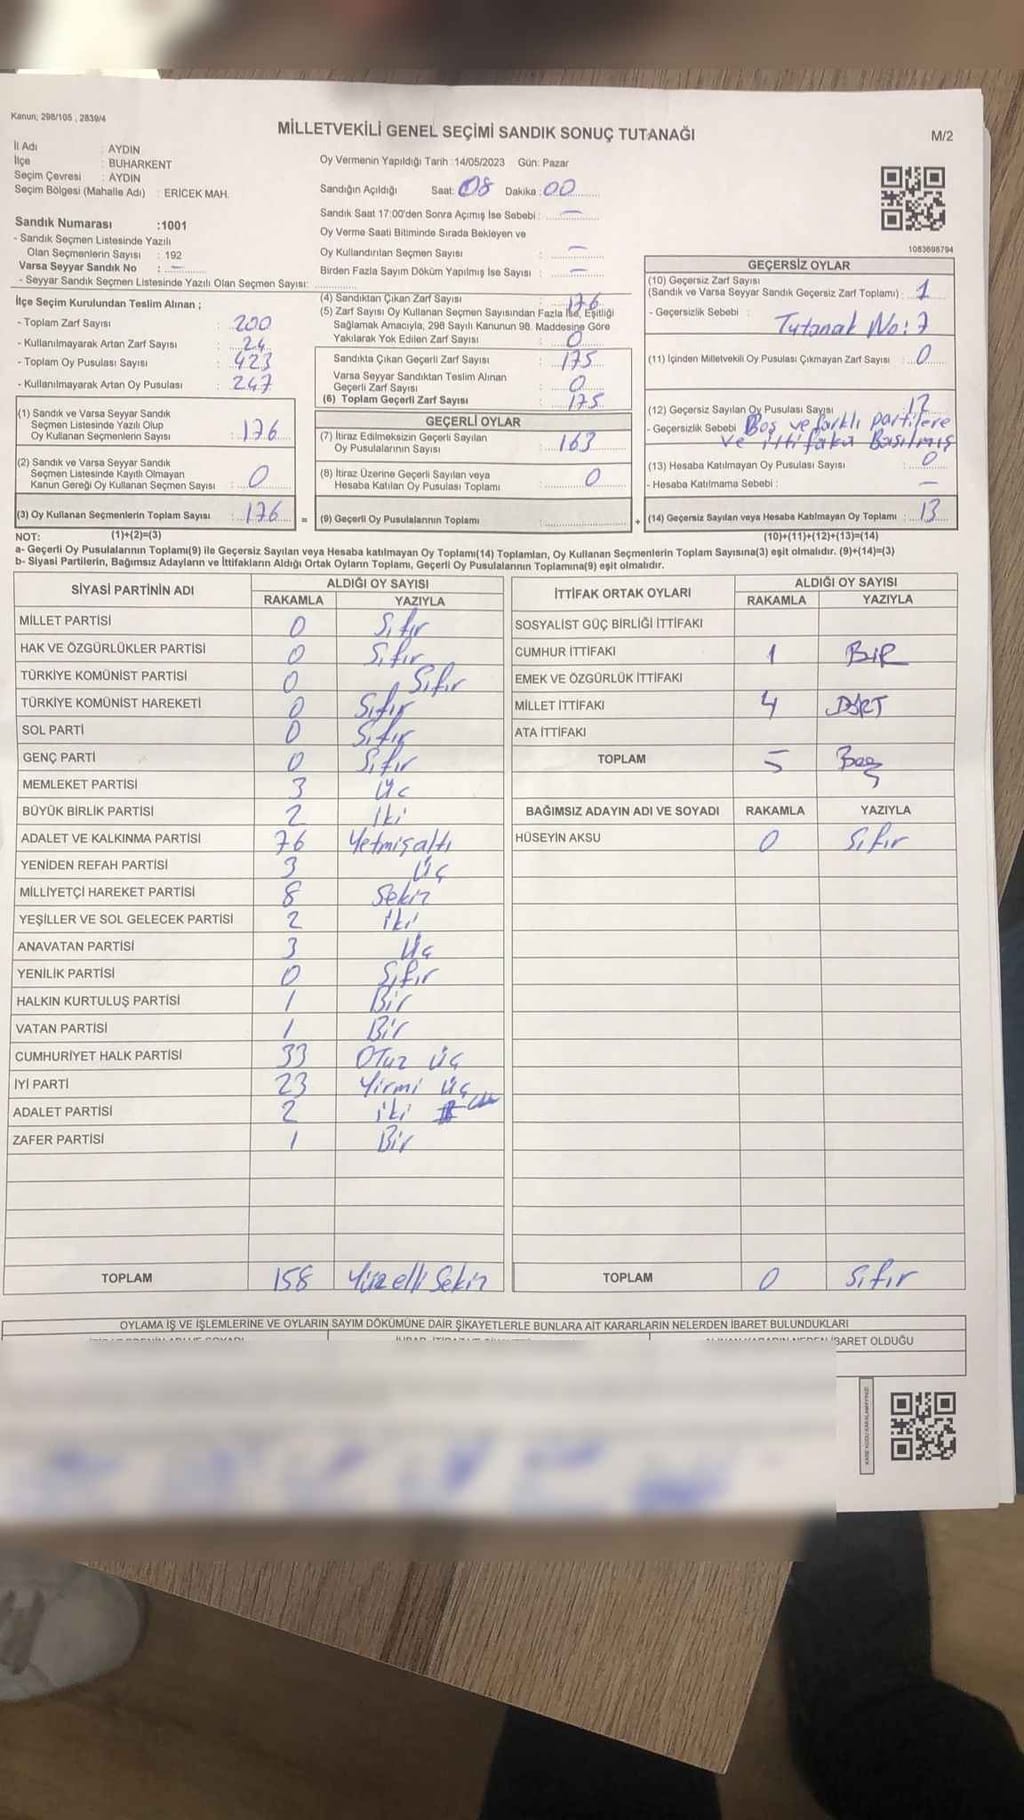 Kanun; 298/105 , 2839/4
MİLLETVEKİLİ GENEL SEÇİMİ SANDIK SONUÇ TUTANAĞI
M/2
İl Adı : AYDIN
İlçe : BUHARKENT
Seçim Çevresi : AYDIN
Seçim Bölgesi (Mahalle Adı) : ERİCEK MAH.
Oy Vermenin Yapıldığı Tarih :14/05/2023 Gün: Pazar
Sandığın Açıldığı Saat: 08 Dakika : 00
Sandık Saat 17:00'den Sonra Açımış İse Sebebi : —
Oy Verme Saati Bitiminde Sırada Bekleyen ve
Oy Kullandırılan Seçmen Sayısı : —
Birden Fazla Sayım Döküm Yapılmış İse Sayısı : —
1083698794
Sandık Numarası :1001
- Sandık Seçmen Listesinde Yazılı
Olan Seçmenlerin Sayısı : 192
Varsa Seyyar Sandık No : —
- Seyyar Sandık Seçmen Listesinde Yazılı Olan Seçmen Sayısı:
İlçe Seçim Kurulundan Teslim Alınan ;
- Toplam Zarf Sayısı : 200
- Kullanılmayarak Artan Zarf Sayısı : 24
- Toplam Oy Pusulası Sayısı : 423
- Kullanılmayarak Artan Oy Pusulası : 247
(1) Sandık ve Varsa Seyyar Sandık
Seçmen Listesinde Yazılı Olup
Oy Kullanan Seçmenlerin Sayısı : 176
(2) Sandık ve Varsa Seyyar Sandık
Seçmen Listesinde Kayıtlı Olmayan
Kanun Gereği Oy Kullanan Seçmen Sayısı : 0
(3) Oy Kullanan Seçmenlerin Toplam Sayısı : 176
(4) Sandıktan Çıkan Zarf Sayısı : 176
(5) Zarf Sayısı Oy Kullanan Seçmen Sayısından Fazla İse, Eşitliği
Sağlamak Amacıyla, 298 Sayılı Kanunun 98. Maddesine Göre
Yakılarak Yok Edilen Zarf Sayısı : 0
Sandıkta Çıkan Geçerli Zarf Sayısı : 175
Varsa Seyyar Sandıktan Teslim Alınan
Geçerli Zarf Sayısı : 0
(6) Toplam Geçerli Zarf Sayısı : 175
GEÇERLİ OYLAR
(7) İtiraz Edilmeksizin Geçerli Sayılan
Oy Pusulalarının Sayısı : 163
(8) İtiraz Üzerine Geçerli Sayılan veya
Hesaba Katılan Oy Pusulası Toplamı : 0
= (9) Geçerli Oy Pusulalarının Toplamı : +
GEÇERSİZ OYLAR
(10) Geçersiz Zarf Sayısı
(Sandık ve Varsa Seyyar Sandık Geçersiz Zarf Toplamı) : 1
- Geçersizlik Sebebi : Tutanak No: 7
(11) İçinden Milletvekili Oy Pusulası Çıkmayan Zarf Sayısı : 0
(12) Geçersiz Sayılan Oy Pusulası Sayısı : 12
- Geçersizlik Sebebi Boş ve farklı partilere
ve ittifaka Basılmış
(13) Hesaba Katılmayan Oy Pusulası Sayısı : 0
- Hesaba Katılmama Sebebi : —
(14) Geçersiz Sayılan veya Hesaba Katılmayan Oy Toplamı : 13
NOT: (1)+(2)=(3) (10)+(11)+(12)+(13)=(14)
a- Geçerli Oy Pusulalarının Toplamı(9) ile Geçersiz Sayılan veya Hesaba katılmayan Oy Toplamı(14) Toplamları, Oy Kullanan Seçmenlerin Toplam Sayısına(3) eşit olmalıdır. (9)+(14)=(3)
b- Siyasi Partilerin, Bağımsız Adayların ve İttifakların Aldığı Ortak Oyların Toplamı, Geçerli Oy Pusulalarının Toplamına(9) eşit olmalıdır.
SİYASİ PARTİNİN ADI ALDIĞI OY SAYISI
RAKAMLA YAZIYLA
MİLLET PARTİSİ 0 Sıfır
HAK VE ÖZGÜRLÜKLER PARTİSİ 0 Sıfır
TÜRKİYE KOMÜNİST PARTİSİ 0 Sıfır
TÜRKİYE KOMÜNİST HAREKETİ 0 Sıfır
SOL PARTİ 0 Sıfır
GENÇ PARTİ 0 Sıfır
MEMLEKET PARTİSİ 3 Üç
BÜYÜK BİRLİK PARTİSİ 2 İki
ADALET VE KALKINMA PARTİSİ 76 Yetmişaltı
YENİDEN REFAH PARTİSİ 3 Üç
MİLLİYETÇİ HAREKET PARTİSİ 8 Sekiz
YEŞİLLER VE SOL GELECEK PARTİSİ 2 iki
ANAVATAN PARTİSİ 3 Üç
YENİLİK PARTİSİ 0 Sıfır
HALKIN KURTULUŞ PARTİSİ 1 Bir
VATAN PARTİSİ 1 Bir
CUMHURİYET HALK PARTİSİ 33 Otuz üç
İYİ PARTİ 23 Yirmi üç
ADALET PARTİSİ 2 iki
ZAFER PARTİSİ 1 Bir
TOPLAM 158 Yüzelli Sekiz
İTTİFAK ORTAK OYLARI ALDIĞI OY SAYISI
RAKAMLA YAZIYLA
SOSYALİST GÜÇ BİRLİĞİ İTTİFAKI
CUMHUR İTTİFAKI 1 BİR
EMEK VE ÖZGÜRLÜK İTTİFAKI
MİLLET İTTİFAKI 4 DÖRT
ATA İTTİFAKI
TOPLAM 5 Beş
BAĞIMSIZ ADAYIN ADI VE SOYADI RAKAMLA YAZIYLA
HÜSEYİN AKSU 0 Sıfır
TOPLAM 0 Sıfır
OYLAMA İŞ VE İŞLEMLERİNE VE OYLARIN SAYIM DÖKÜMÜNE DAİR ŞİKAYETLERLE BUNLARA AİT KARARLARIN NELERDEN İBARET BULUNDUKLARI
İBARET OLDUĞU